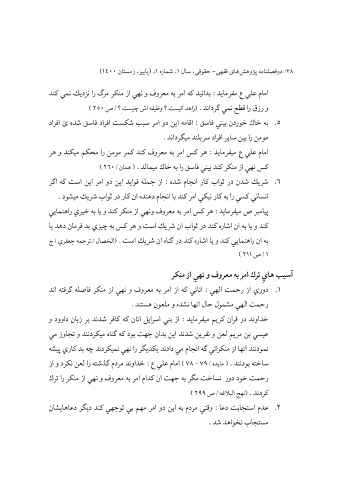 ۳۸/ دوفصلنامه پژوهش‌های فقهی- حقوقی، سال ۱، شماره ۱، (پاییز، زمستان ۱۴۰۰)
امام علي ع مفرمايد : بدانيد كه امر به معروف و نهي از منكر مرگ را نزديك نمي كند
و رزق را قطع نمي گرداند . (زاهد كيست ؟ وظيفه اش چيست ؟ / ص ۲۵۰ )
۵. به خاك خوردن بيني فاسق : اقامه اين دو امر سبب شكست افراد فاسق شده ئ افراد
مومن را بين ساير افراد سربلند ميگرداند .
امام علي ع ميفرمايد : هر كس امر به معروف كند كمر مومن را محكم ميكند و هر
كس نهي از منكر كند بيني فاسق را به خاك ميمالد . ( همان / ۲۶۰ )
۶. شريك شدن در ثواب كار انجام شده : از جمله فوايد اين دو امر اين است كه اگر
انساني كسي را به كار نيكي امر كند با انجام دهنده ان كار در ثواب شريك ميشود .
پيامبر ص ميفرمايد : هر كس امر به معروف ونهي از منكر كند و يا به خيري راهنمايي
كند و يا به ان اشاره كند در ثواب ان شريك است و هر كس به چيزي بد فرمان دهد يا
به ان راهنمايي كند و يا اشاره كند در گناه ان شريك است . (الخصال / ترجمه جعفري / ج
۱ / ص ۲۱۱ )
آسيب هاي ترك امر به معروف و نهي از منكر
۱. دوري از رحمت الهي : اناني كه از امر به معروف و نهي از منكر فاصله گرفته اند
رحمت الهي مشمول حال انها نشده و ملعون هستند .
خداوند در قران كريم ميفرمايد : از بني اسراييل انان كه كافر شدند بر زبان داوود و
عيسي بن مريم لعن و نفرين شدند اين بدان جهت بود كه گناه ميكردند و تجاوز مي
نمودند انها از منكراتي گه انجام مي دادند يكديگر را نهي نميكردند چه بد كاري پيشه
ساخته بودند . ( مايده / ۷۹ - ۷۸ ) امام علي ع : خداوند مردم گذشته را لعن نكرد و از
رحمت خود دور نساخت مگر به جهت ان كدام امر به معروف و نهي از منكر را ترك
كردند . (نهج البلاغه / ص ۲۹۹ )
۲. عدم استجابت دعا : وقتي مردم به اين دو امر مهم بي توجهي كند ديگر دعاهايشان
مستجاب نخواهد شد .